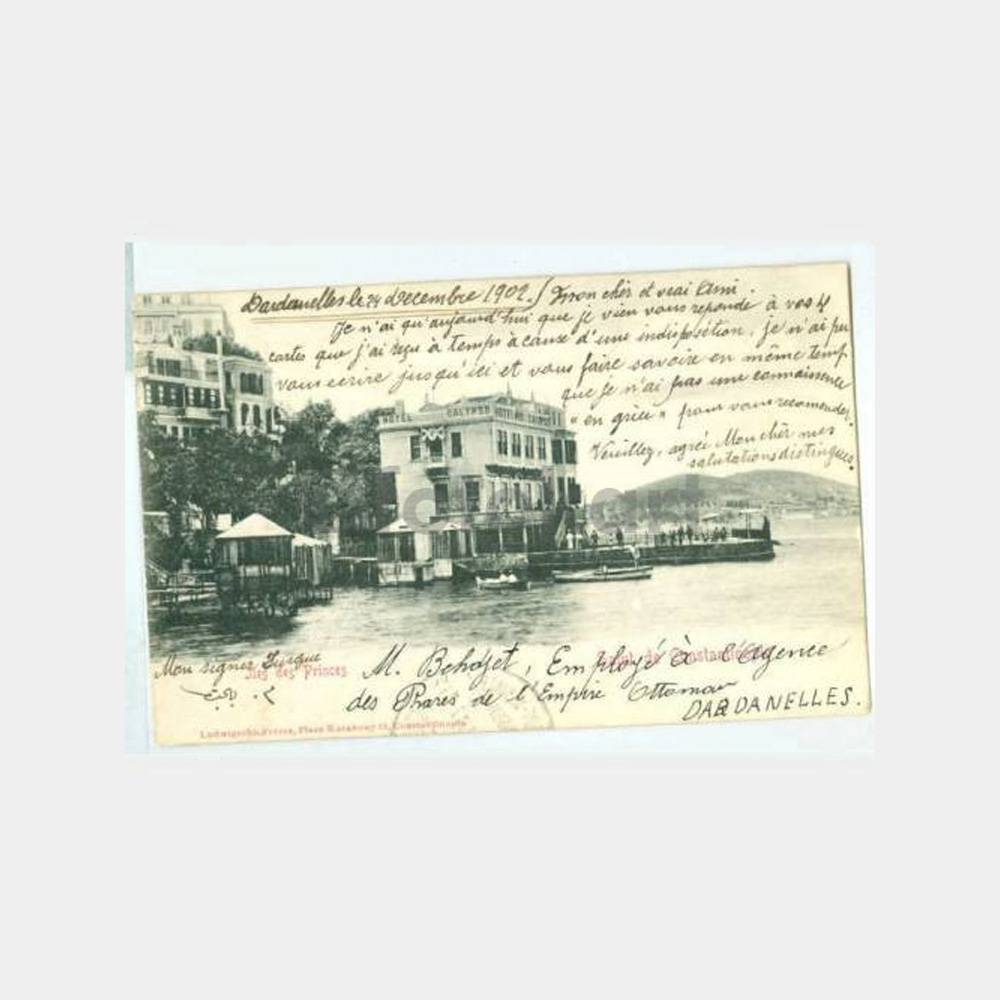 Dardanelles le 24 Decembre 1902. / Mon cher et vrai Ami.
Je n'ai qu'aujourd'hui que je vien vous reponde à vos 4
cartes que j'ai reçu à temps à cause d'une indisposition, je n'ai pu
vous ecrire jusqu'ici et vous faire savoire en même temp
que je n'ai pas une connaissence
"en grèce" pour vous recomender.
Veuillez, agreé Mon cher mes
salutations distingues.
HOTEL CALYPSO HOTEL CALYPSO
Mon signer Turque
Iles des Princes
Salut de Constantinople
M. Behdjet, Employé à l'Agence
des Phares de l'Empire Ottoman
DARDANELLES.
Ludwigsohn Frères, Place Karakeuy Constantinople